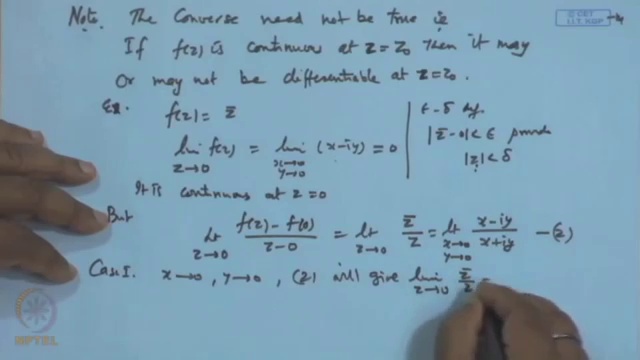 Note. The Converse need not be true ie
If f(z) is continuous at z=z₀ then it may
Or may not be differentiable at z=z₀.
Ex. f(z) = z̄
lim z→0 f(z) = lim x→0 y→0 (x-iy) = 0
ε-δ def.
|z̄-0|<ε provide
|z|<δ
It is continuous at z=0
But lt z→0 (f(z)-f(0))/(z-0) = lt z→0 z̄/z = lt x→0 y→0 (x-iy)/(x+iy) —(2)
Case I. x→0, y→0, (2) will give lim z→0 z̄/z =
© CET
I.I.T. KGP
NPTEL